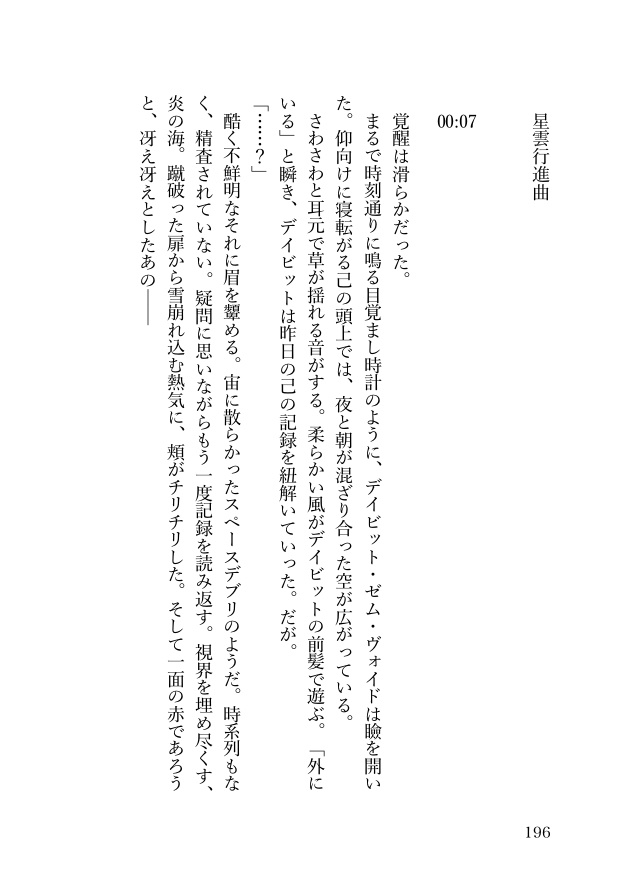 星雲行進曲
00:07
覚醒は滑らかだった。
まるで時刻通りに鳴る目覚まし時計のように、デイビット・ゼム・ヴォイドは瞼を開い
た。仰向けに寝転がる己の頭上では、夜と朝が混ざり合った空が広がっている。
さわさわと耳元で草が揺れる音がする。柔らかい風がデイビットの前髪で遊ぶ。「外に
いる」と瞬き、デイビットは昨日の己の記録を紐解いていった。だが。
「……？」
酷く不鮮明なそれに眉を顰める。宙に散らかったスペースデブリのようだ。時系列もな
く、精査されていない。疑問に思いながらもう一度記録を読み返す。視界を埋め尽くす、
炎の海。蹴破った扉から雪崩れ込む熱気に、頬がチリチリした。そして一面の赤であろう
と、冴え冴えとしたあの――
196